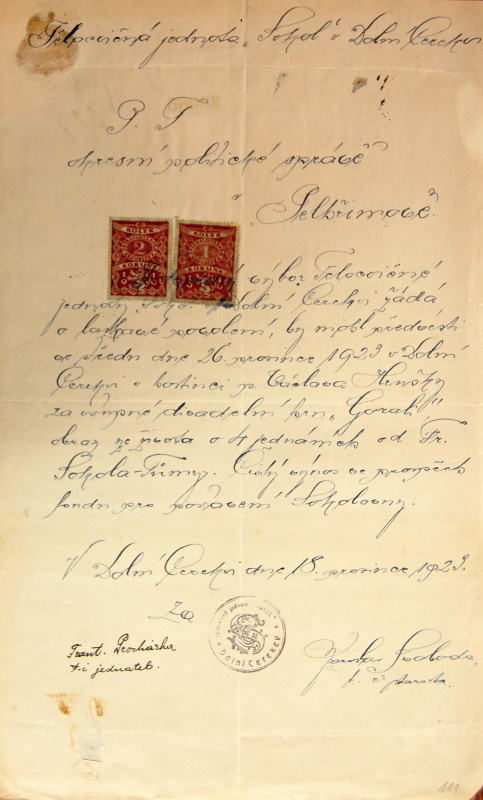 Tělocvičná jednota „Sokol" v Dolní Cerekvi
P. T.
okresní politické správě
v Pelhřimově.
ČS KOLEK 2 KORUNY
ČS KOLEK 1 KORUNA
výbor Tělocvičné
jednoty Sokol v Dolní Cerekvi žádá
o laskavé povolení, by mohl předvésti
ve středu dne 26. prosince 1923 v Dolní
Cerekvi v hostinci p. Václava
za vstupné divadelní hru „Gorali".
obraz ze života o 4 jednáních od Fr.
Sokola-Tůmy. Čistý výnos ve prospěch
fondu pro postavení Sokolovny.
V Dolní Cerekvi dne 18. prosince 1923.
Za
Dolní Cerekev
Frant. Procházka
t. č. jednatel.
Jaroslav Svoboda
t. č. starosta
111